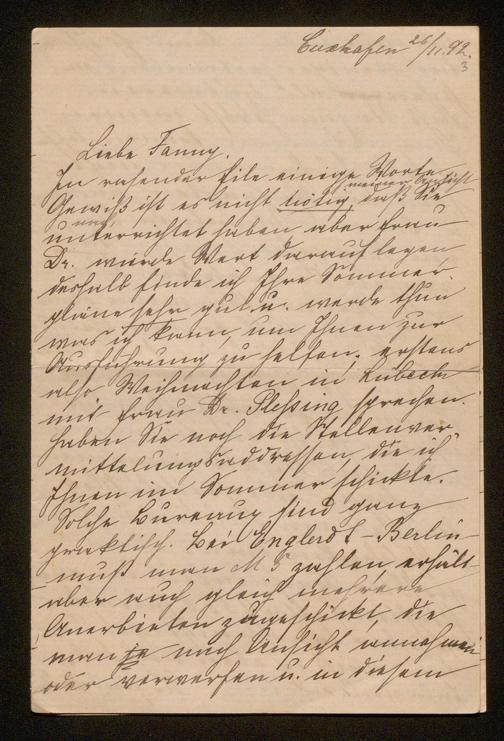 Cuxhafen 26/11.92.
3
Liebe Fanny.
In rasender Eile einige Worte
meiner Ansicht
Gewiß ist es nicht nötig, daß Sie
nach
unterrichtet haben aber Frau
Dr. würde Wert darauf legen
deshalb finde ich Ihre Sommer-
pläne sehr gut u. werde thun
was ich kann, um Ihnen zur
Ausführung zu helfen; erstens
also Weihnachten in Lübeck
mit Frau Dr. Plessing sprechen.
Haben Sie noch die Stellenver-
mittelungsaddressen, die ich
Ihnen im Sommer schickte.
Solche Bureaux sind ganz
praktisch. Bei Englerdt-Berlin
muß man M 5 zahlen, erhält
aber auch gleich mehrere
Anerbieten zugeschickt, die
man je nach Ansicht annehmen
oder verwerfen u. in diesem